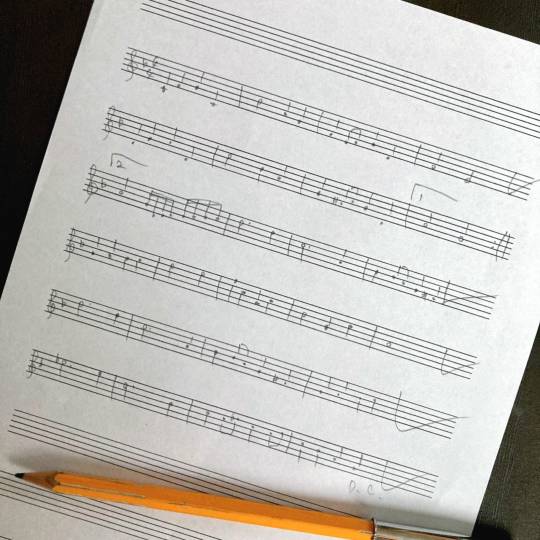 2
1
D. C.